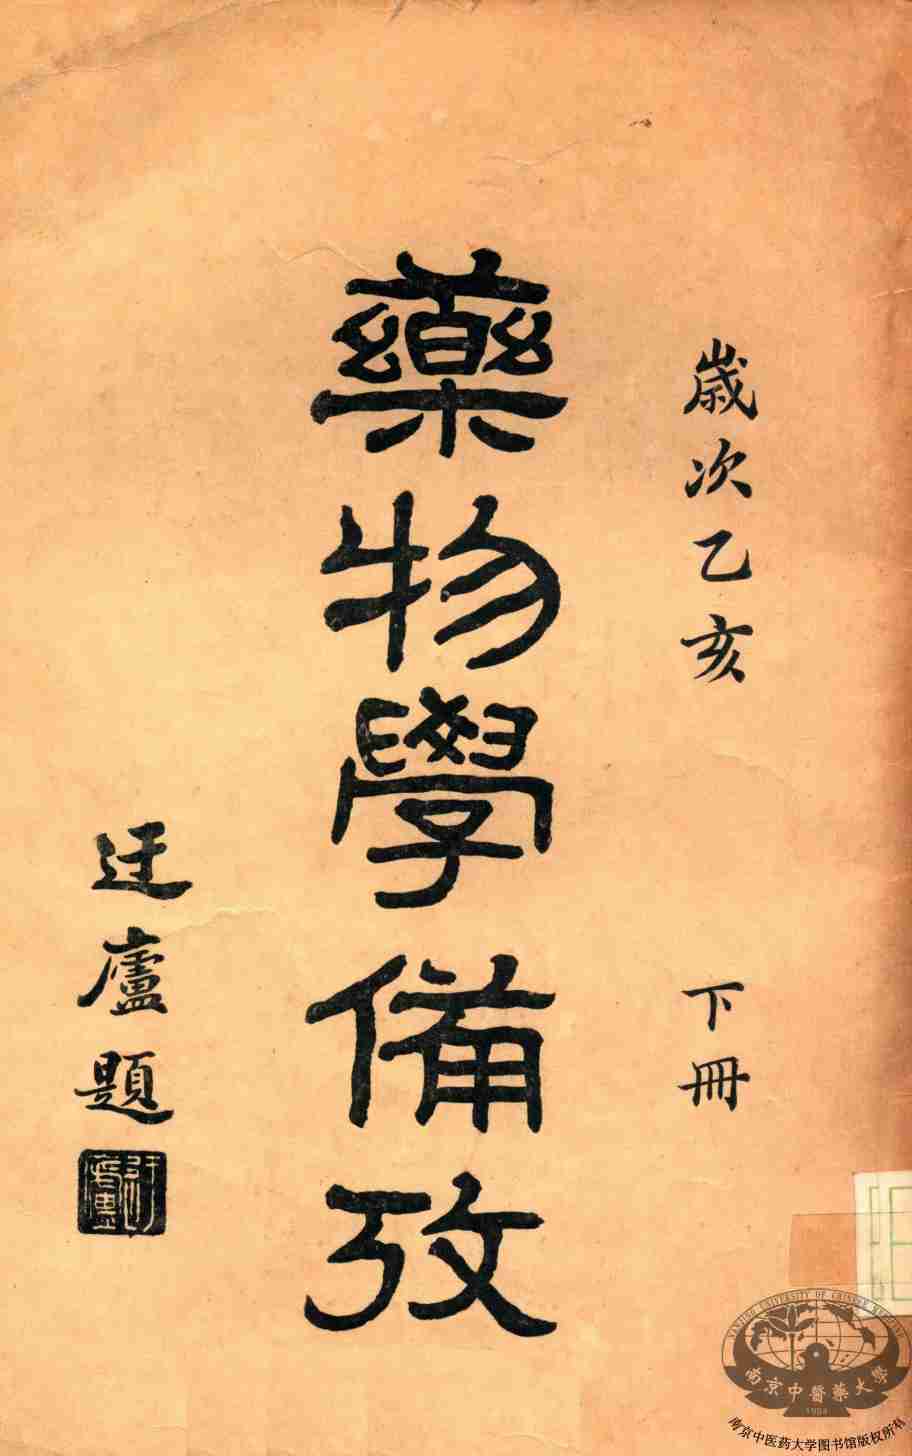 歲次乙亥
下冊
藥物學備攷
迂廬題
NANJING UNIVERSITY OF CHINESE MEDICINE
南京中醫藥大學
1954
南京中医药大学图书馆版权所有